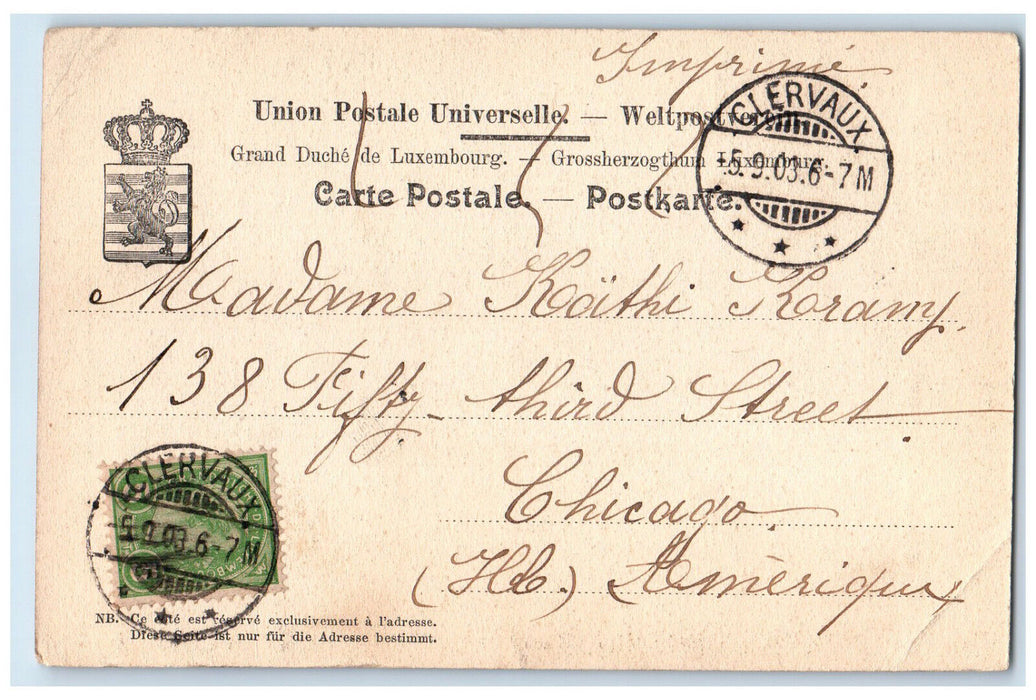 Imprimé.
Union Postale Universelle. — Weltpostverein.
Grand Duché de Luxembourg. — Grossherzogthum Luxemburg.
Carte Postale. — Postkarte.
CLERVAUX
5.9.03.6-7M
Madame Käthi Koramy.
138 Fifty third Street
CLERVAUX
5.9.03.6-7M
Chicago.
(Ill.) Amèrique
NB. Ce côté est réservé exclusivement à l'adresse.
Diese Seite ist nur für die Adresse bestimmt.